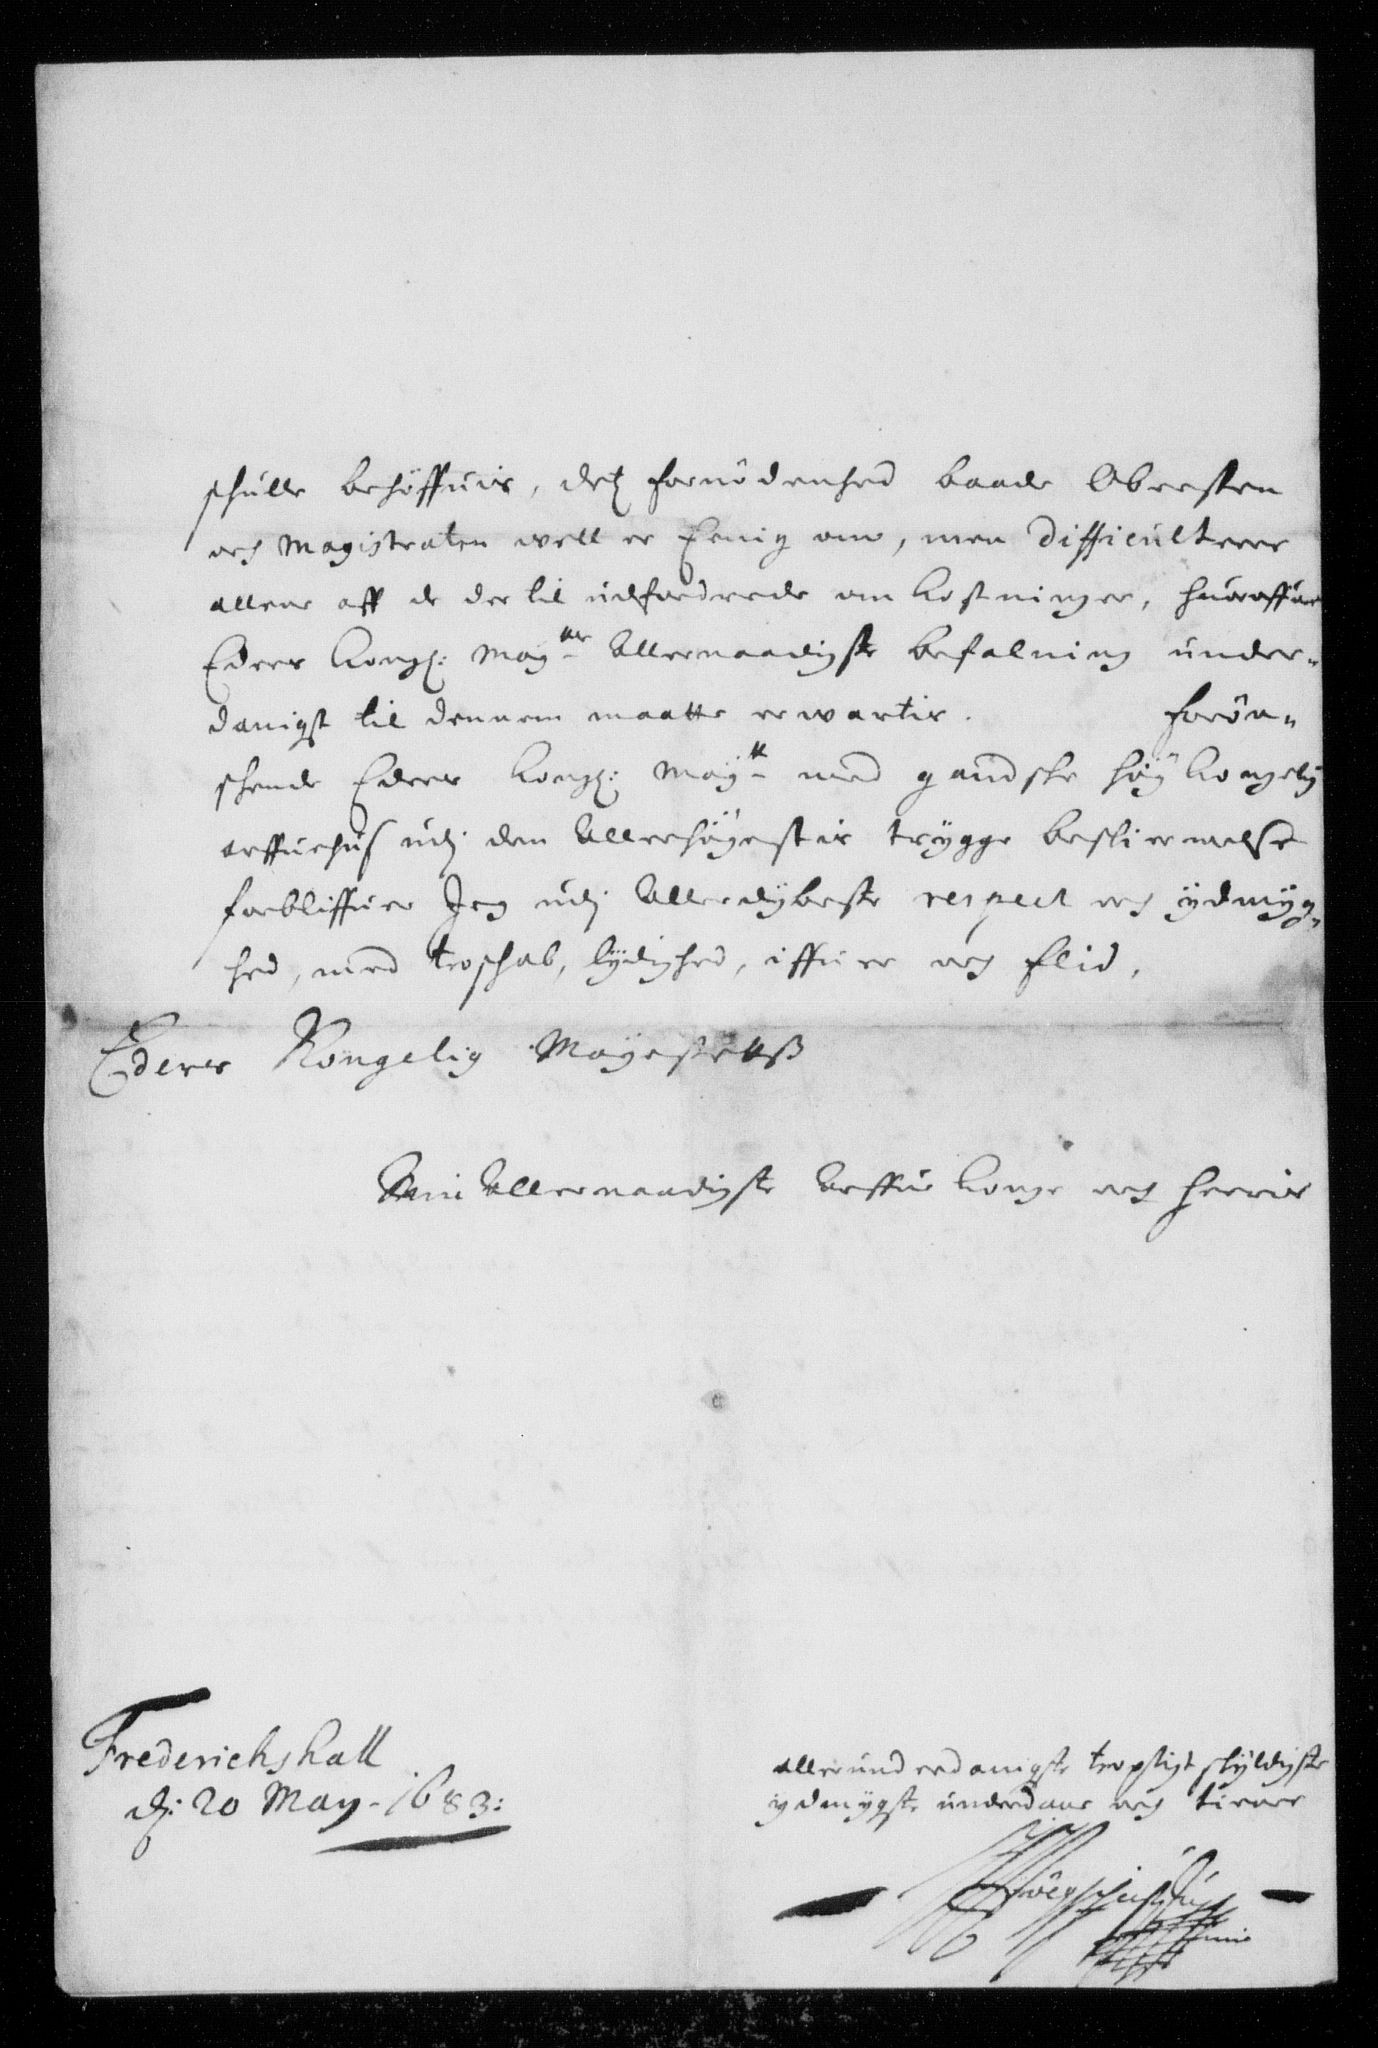 schulle behöffuis, dets fornödenhed baade Obersten
och Magistraten well er Eenig om, men difficulterer
allene aff de der til udfordrede omkostninger, huoroffuer
Eders Kongl: May:ts Allernaadigste befalning under-
danigst til dennem maatte erwartis. forön-
schende Eders Kongl: May:tt med gandske höy Kongelig
arffuehus udj den Allerhöyestis trygge beskiermelse
forbliffuer Jeg udj Allerdybeste respect och ydmyg-
hed, med troschab, lydighed, iffuer och flid,
Eders Kongelig Mayestettß
Min Allernaadigste Arffue Konge och Herris
Frederichshall
dj: 20 May - 1683:
allerunderdanigste tropligt skyldigste
ydmygste underdaan och tienner